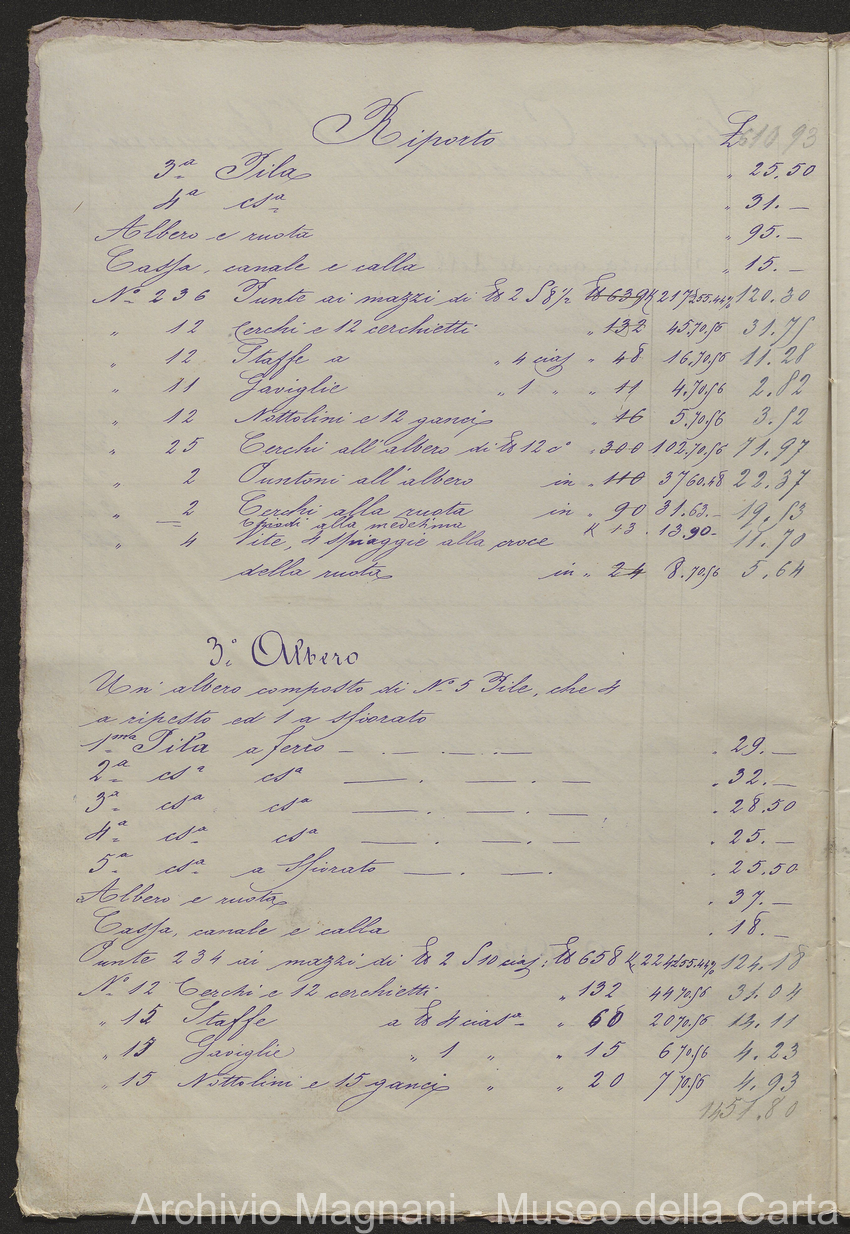 Riporto £ 610.93
3ª Pila " 25.50
4ª csª " 31.—
Albero e ruota " 95.—
Cassa, canale e calla " 15.—
Nº 236 Punte ai mazzi di ℔ 2 S 8½ ℔ 639 K 217 120.30
" 12 Cerchi e 12 cerchietti " 132 45.70.56 31.75
" 12 Staffe a " 4 ciasª " 48 16.70.56 11.28
" 11 Gaviglie " 1 " " 11 4.70.56 2.82
" 12 Nottolini e 12 ganci " 16 5.70.56 3.52
" 25 Cerchi all'albero di ℔ 12 cº " 300 102.70.56 71.97
" 2 Puntoni all'albero in " 110 37 60.48 22.37
" 2 Cerchi alla ruota in " 90 31.63.— 19.53
Chiodi alla medesima K 13. 13.90— 11.70
" 4 Vite, 4 spiaggie alla croce
della ruota in " 24 8.70.56 5.64
3º Albero
Un' albero composto di Nº 5 Pile, che 4
a ripesto ed 1 a sfiorato
1ma Pila a ferro — . — . — . — . 29.—
2ª csª csª — . — . — . 32.—
3ª csª csª — . — . — . 28.50
4ª csª csª — . — . — . 25.—
5ª csª a sfiorato — . — . . 25.50
Albero e ruota . 37.—
Cassa, canale e calla . 18.—
Punte 234 ai mazzi di ℔ 2 S 10 ciasª: ℔ 658 K 224 124.18
Nº 12 Cerchi e 12 cerchietti " 132 44 70.56 31.04
" 15 Staffe a ℔ 4 ciasª " 60 20 70.56 14.11
" 15 Gaviglie " 1 " " 15 6 70.56 4.23
" 15 Nottolini e 15 ganci " " 20 7 70.56 4.93
1457.80
Archivio Magnani - Museo della Carta